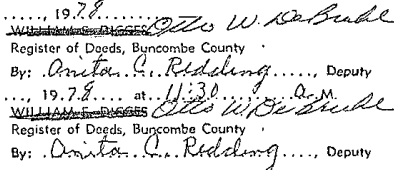 ....., 19.78. .....
WILLIAM E. DIGGES Otto W. DeBruhl
Register of Deeds, Buncombe County
By: .Anita C. Redding....., Deputy
...., 19.78. at .11:30.....a. M.
WILLIAM E. DIGGES Otto W. DeBruhl
Register of Deeds, Buncombe County
By: .Anita C. Redding...., Deputy